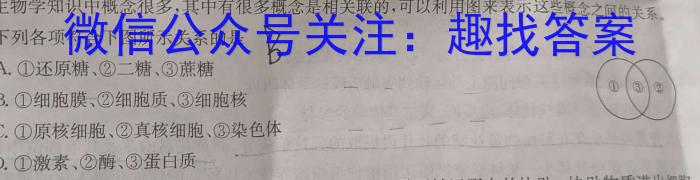 生物学知识中概念很多,其中有很多概念是相关联的,可以利用图来表示这些概念之间的关系。
下列各项
微信公众号关注：趣找答案
B
A. ①还原糖、②二糖、③蔗糖
B. ①细胞膜、②细胞质、③细胞核
C. ①原核细胞、②真核细胞、③染色体
D. ①激素、②酶、③蛋白质
① ③ ②